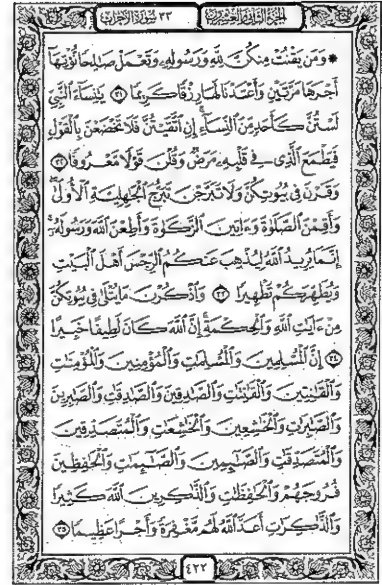 الجزء الثاني والعشرون ٣٣ سورة الأحزاب
۞ وَمَن يَقْنُتْ مِنكُنَّ لِلَّهِ وَرَسُولِهِۦ وَتَعْمَلْ صَـٰلِحًا نُّؤْتِهَآ
أَجْرَهَا مَرَّتَيْنِ وَأَعْتَدْنَا لَهَا رِزْقًا كَرِيمًا ٣١ يَـٰنِسَآءَ ٱلنَّبِىِّ
لَسْتُنَّ كَأَحَدٍ مِّنَ ٱلنِّسَآءِ إِنِ ٱتَّقَيْتُنَّ فَلَا تَخْضَعْنَ بِٱلْقَوْلِ
فَيَطْمَعَ ٱلَّذِى فِى قَلْبِهِۦ مَرَضٌ وَقُلْنَ قَوْلًا مَّعْرُوفًا ٣٢
وَقَرْنَ فِى بُيُوتِكُنَّ وَلَا تَبَرَّجْنَ تَبَرُّجَ ٱلْجَـٰهِلِيَّةِ ٱلْأُولَىٰ
وَأَقِمْنَ ٱلصَّلَوٰةَ وَءَاتِينَ ٱلزَّكَوٰةَ وَأَطِعْنَ ٱللَّهَ وَرَسُولَهُۥٓ
إِنَّمَا يُرِيدُ ٱللَّهُ لِيُذْهِبَ عَنكُمُ ٱلرِّجْسَ أَهْلَ ٱلْبَيْتِ
وَيُطَهِّرَكُمْ تَطْهِيرًا ٣٣ وَٱذْكُرْنَ مَا يُتْلَىٰ فِى بُيُوتِكُنَّ
مِنْ ءَايَـٰتِ ٱللَّهِ وَٱلْحِكْمَةِ إِنَّ ٱللَّهَ كَانَ لَطِيفًا خَبِيرًا
٣٤ إِنَّ ٱلْمُسْلِمِينَ وَٱلْمُسْلِمَـٰتِ وَٱلْمُؤْمِنِينَ وَٱلْمُؤْمِنَـٰتِ
وَٱلْقَـٰنِتِينَ وَٱلْقَـٰنِتَـٰتِ وَٱلصَّـٰدِقِينَ وَٱلصَّـٰدِقَـٰتِ وَٱلصَّـٰبِرِينَ
وَٱلصَّـٰبِرَٰتِ وَٱلْخَـٰشِعِينَ وَٱلْخَـٰشِعَـٰتِ وَٱلْمُتَصَدِّقِينَ
وَٱلْمُتَصَدِّقَـٰتِ وَٱلصَّـٰٓئِمِينَ وَٱلصَّـٰٓئِمَـٰتِ وَٱلْحَـٰفِظِينَ
فُرُوجَهُمْ وَٱلْحَـٰفِظَـٰتِ وَٱلذَّٰكِرِينَ ٱللَّهَ كَثِيرًا
وَٱلذَّٰكِرَٰتِ أَعَدَّ ٱللَّهُ لَهُم مَّغْفِرَةً وَأَجْرًا عَظِيمًا ٣٥
٤٢٢